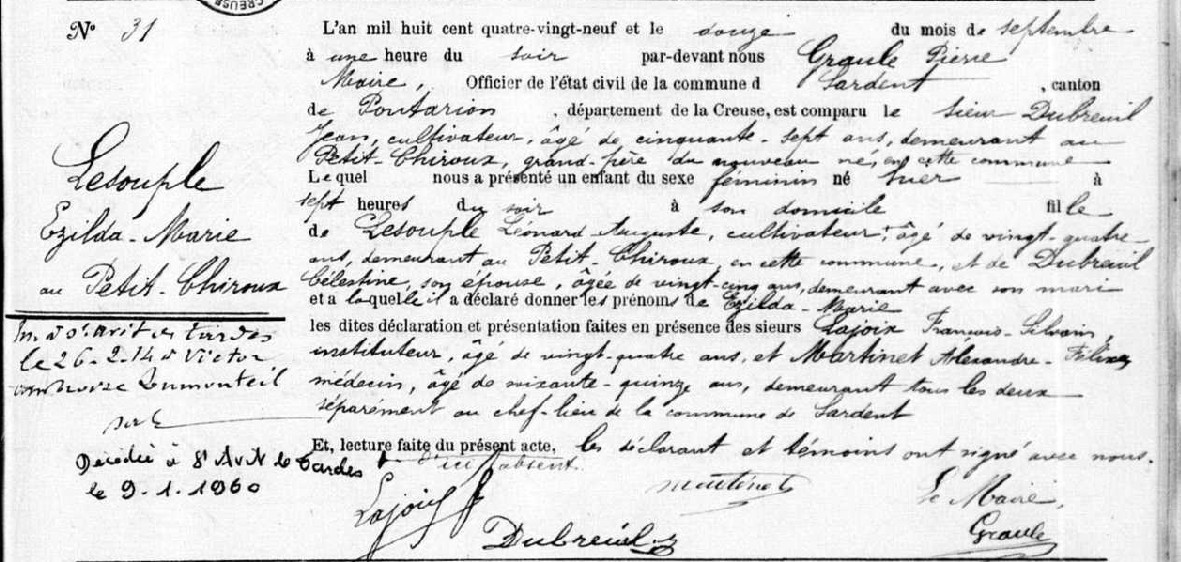 CREUSE
N° 31
Lesouple
Ezilda-Marie
au Petit-Chiroux
le 26-2-14 à Victor
Décédée à St Avit le Tardes
le 9-1-1960
L'an mil huit cent quatre-vingt-neuf et le douze du mois de septembre
à une heure du soir par-devant nous Graule Pierre
Maire, Officier de l'état civil de la commune d Sardent, canton
de Pontarion, département de la Creuse, est comparu le sieur Dubreuil
Jean, cultivateur, âgé de cinquante-sept ans, demeurant au
Petit-Chiroux, grand-père du nouveau né, en cette commune
Lequel nous a présenté un enfant du sexe féminin né hier à
sept heures du soir à son domicile fille
de Lesouple Léonard Auguste, cultivateur, âgé de vingt-quatre
ans, demeurant au Petit-Chiroux, en cette commune, et de Dubreuil
Célestine, son épouse, âgée de vingt-cinq ans, demeurant avec son mari
et a laquelle il a déclaré donner les prénoms de Ezilda-Marie
les dites déclaration et présentation faites en présence des sieurs Lajoix François-Silvain,
instituteur, âgé de vingt-quatre ans, et Martinet Alexandre-Félix
médecin, âgé de soixante-quinze ans, demeurant tous les deux
séparément au chef-lieu de la commune de Sardent
Et, lecture faite du présent acte, les déclarant et témoins ont signé avec nous.
Lajoix
Martinet
Le Maire,
Dubreuil
Graule